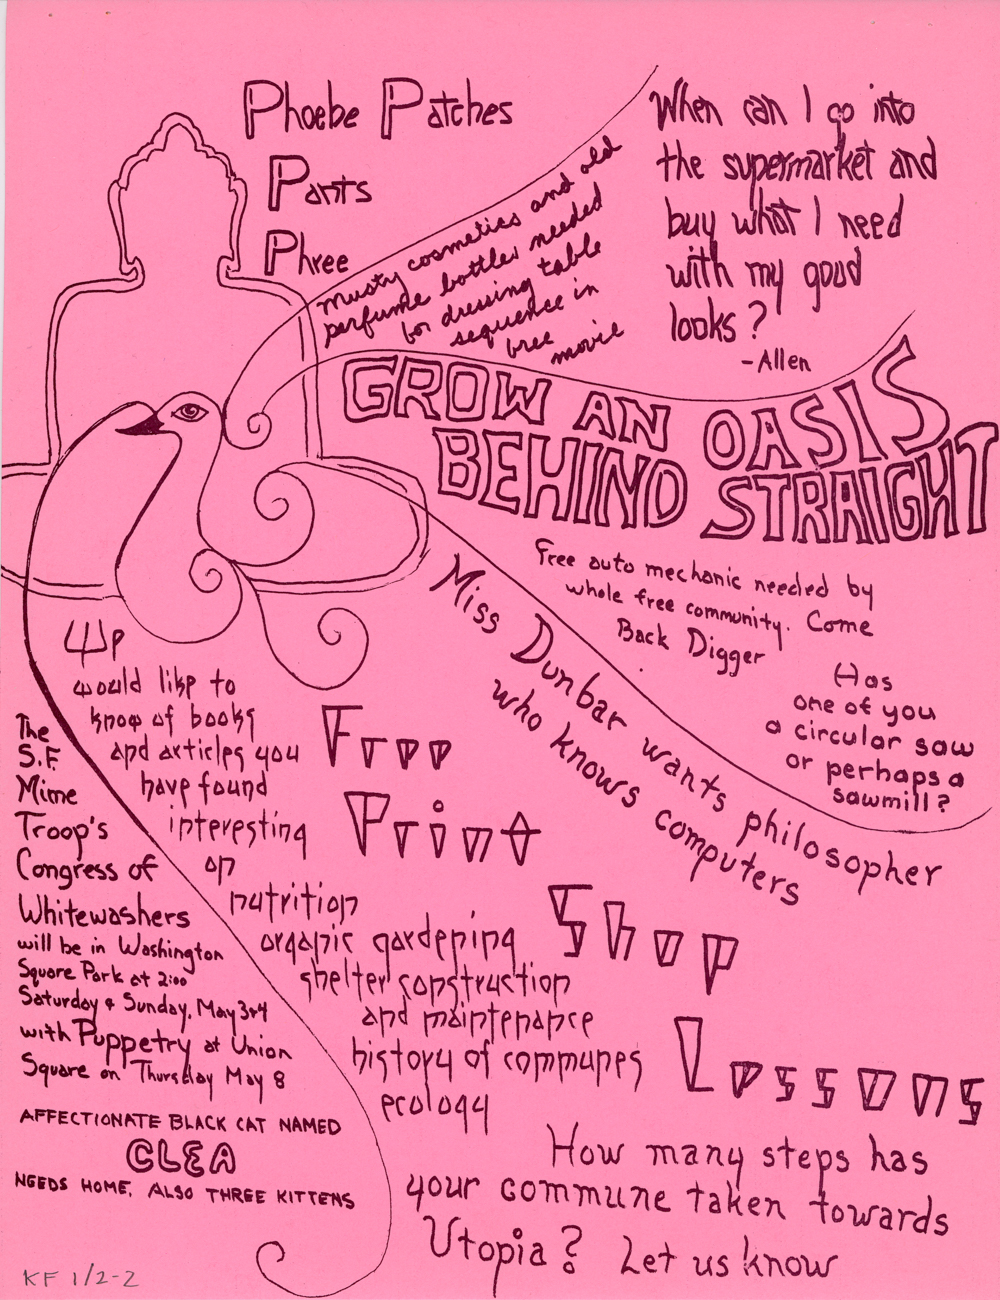 Phoebe Patches
Pants
Phree
musty cosmetics and old
perfume bottles needed
for dressing table
sequence in
free
movie
When can I go into
the supermarket and
buy what I need
with my good
looks?
-Allen
GROW AN OASIS
BEHIND STRAIGHT
Free auto mechanic needed by
whole free community. Come
Back Digger
Has
one of you
a circular saw
or perhaps a
sawmill?
Miss Dunbar wants philosopher
who knows computers
We
would like to
know of books
and articles you
have found
interesting
on
nutrition
organic gardening
shelter construction
and maintenance
history of communes
ecology
Free
Print
Shop
Lessons
The
S.F
Mime
Troop's
Congress of
Whitewashers
will be in Washington
Square Park at 2:00
Saturday & Sunday, May 3+4
with Puppetry at Union
Square on Thursday May 8
AFFECTIONATE BLACK CAT NAMED
CLEA
NEEDS HOME, ALSO THREE KITTENS
How many steps has
your commune taken towards
Utopia? Let us know
KF 1/2-2